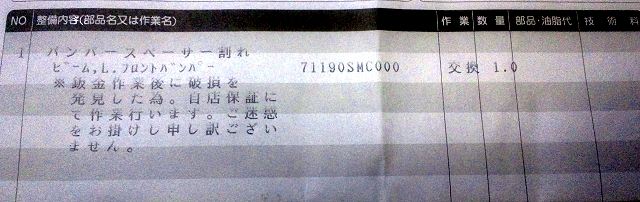 NO 整備内容(部品名又は作業名) 作業 数量 部品・油脂代 技術料
1 バンパースペーサー割れ
ビーム,L.フロントバンパー 71190SMC000 交換 1.0
※鈑金作業後に破損を
発見した為。自店保証に
て作業行います。ご迷惑
をお掛けし申し訳ござい
ません。